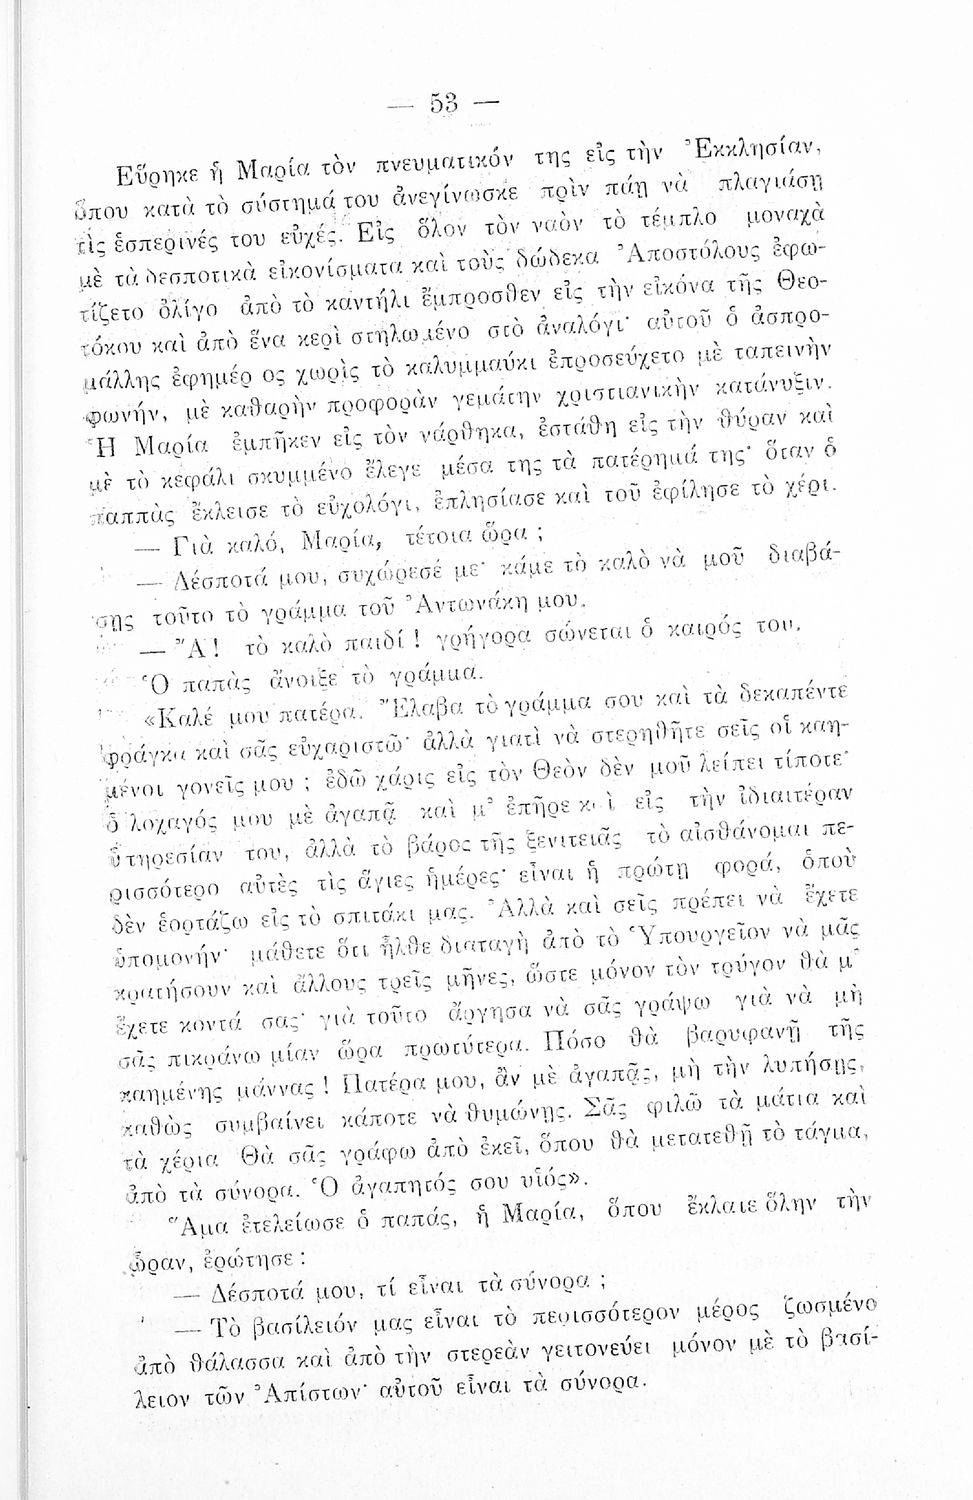 — 53 —
Εὕρηκε ἡ Μαρία τὸν πνευματικόν της εἰς τὴν Ἐκκλησίαν,
ὅπου κατὰ τὸ σύστημά του ἀνεγίνωσκε πρὶν πάῃ νὰ πλαγιάσῃ
τὶς ἑσπερινές του εὐχές. Εἰς ὅλον τὸν ναὸν τὸ τέμπλο μοναχὰ
μὲ τὰ δεσποτικὰ εἰκονίσματα καὶ τοὺς δώδεκα Ἀποστόλους ἐφω-
τίζετο ὀλίγο ἀπὸ τὸ καντήλι ἔμπροσθεν εἰς τὴν εἰκόνα τῆς Θεο-
τόκου καὶ ἀπὸ ἕνα κερὶ στηλωμένο στὸ ἀναλόγι· αὐτοῦ ὁ ἀσπρο-
μάλλης ἐφημέρ ος χωρὶς τὸ καλυμμαύκι ἐπροσεύχετο μὲ ταπεινὴν
φωνήν, μὲ καθαρὴν προφορὰν γεμάτην χριστιανικὴν κατάνυξιν.
Ἡ Μαρία ἐμπῆκεν εἰς τὸν νάρθηκα, ἐστάθη εἰς τὴν θύραν καὶ
μὲ τὸ κεφάλι σκυμμένο ἔλεγε μέσα της τὰ πατέρημά της· ὅταν ὁ
παππὰς ἔκλεισε τὸ εὐχολόγι, ἐπλησίασε καὶ τοῦ ἐφίλησε τὸ χέρι.
— Γιὰ καλό, Μαρία, τέτοια ὥρα ;
— Δέσποτά μου, συχώρεσέ με· κάμε τὸ καλὸ νὰ μοῦ διαβά-
σῃς τοῦτο τὸ γράμμα τοῦ Ἀντωνάκη μου.
— Ἄ! τὸ καλὸ παιδί ! γρήγορα σώνεται ὁ καιρός του.
Ὁ παπὰς ἄνοιξε τὸ γράμμα.
«Καλέ μου πατέρα. Ἔλαβα τὸ γράμμα σου καὶ τὰ δεκαπέντε
φράγκα καὶ σᾶς εὐχαριστῶ· ἀλλὰ γιατὶ νὰ στερηθῆτε σεῖς οἱ καη-
μένοι γονεῖς μου ; ἐδῶ χάρις εἰς τὸν Θεὸν δὲν μοῦ λείπει τίποτε·
ὁ λοχαγός μου μὲ ἀγαπᾷ καὶ μ' ἐπῆρε κ ὶ εἰς τὴν ἰδιαιτέραν
ὑπηρεσίαν του, ἀλλὰ τὸ βάρος τῆς ξενιτειᾶς τὸ αἰσθάνομαι πε-
ρισσότερο αὐτὲς τὶς ἅγιες ἡμέρες· εἶναι ἡ πρώτη φορά, ὁποῦ
δὲν ἑορτάζω εἰς τὸ σπιτάκι μας. Ἀλλὰ καὶ σεῖς πρέπει νὰ ἔχετε
ὑπομονήν· μάθετε ὅτι ἦλθε διαταγὴ ἀπὸ τὸ Ὑπουργεῖον νὰ μᾶς
κρατήσουν καὶ ἄλλους τρεῖς μῆνες, ὥστε μόνον τὸν τρύγον θὰ μ'
ἔχετε κοντά σας· γιὰ τοῦτο ἄργησα νὰ σᾶς γράψω γιὰ νὰ μὴ
σᾶς πικράνω μίαν ὥρα πρωτύτερα. Πόσο θὰ βαρυφανῇ τῆς
καημένης μάννας ! Πατέρα μου, ἂν μὲ ἀγαπᾷς, μὴ τὴν λυπήσῃς,
καθὼς συμβαίνει κάποτε νὰ θυμώνῃς. Σᾶς φιλῶ τὰ μάτια καὶ
τὰ χέρια Θὰ σᾶς γράφω ἀπὸ ἐκεῖ, ὅπου θὰ μετατεθῇ τὸ τάγμα,
ἀπὸ τὰ σύνορα. Ὁ ἀγαπητός σου υἱός».
Ἅμα ἐτελείωσε ὁ παπάς, ἡ Μαρία, ὅπου ἔκλαιε ὅλην τὴν
ὥραν, ἐρώτησε :
— Δέσποτά μου, τί εἶναι τὰ σύνορα ;
— Τὸ βασίλειόν μας εἶναι τὸ περισσότερον μέρος ζωσμένο
ἀπὸ θάλασσα καὶ ἀπὸ τὴν στερεὰν γειτονεύει μόνον μὲ τὸ βασί-
λειον τῶν Ἀπίστων· αὐτοῦ εἶναι τὰ σύνορα.